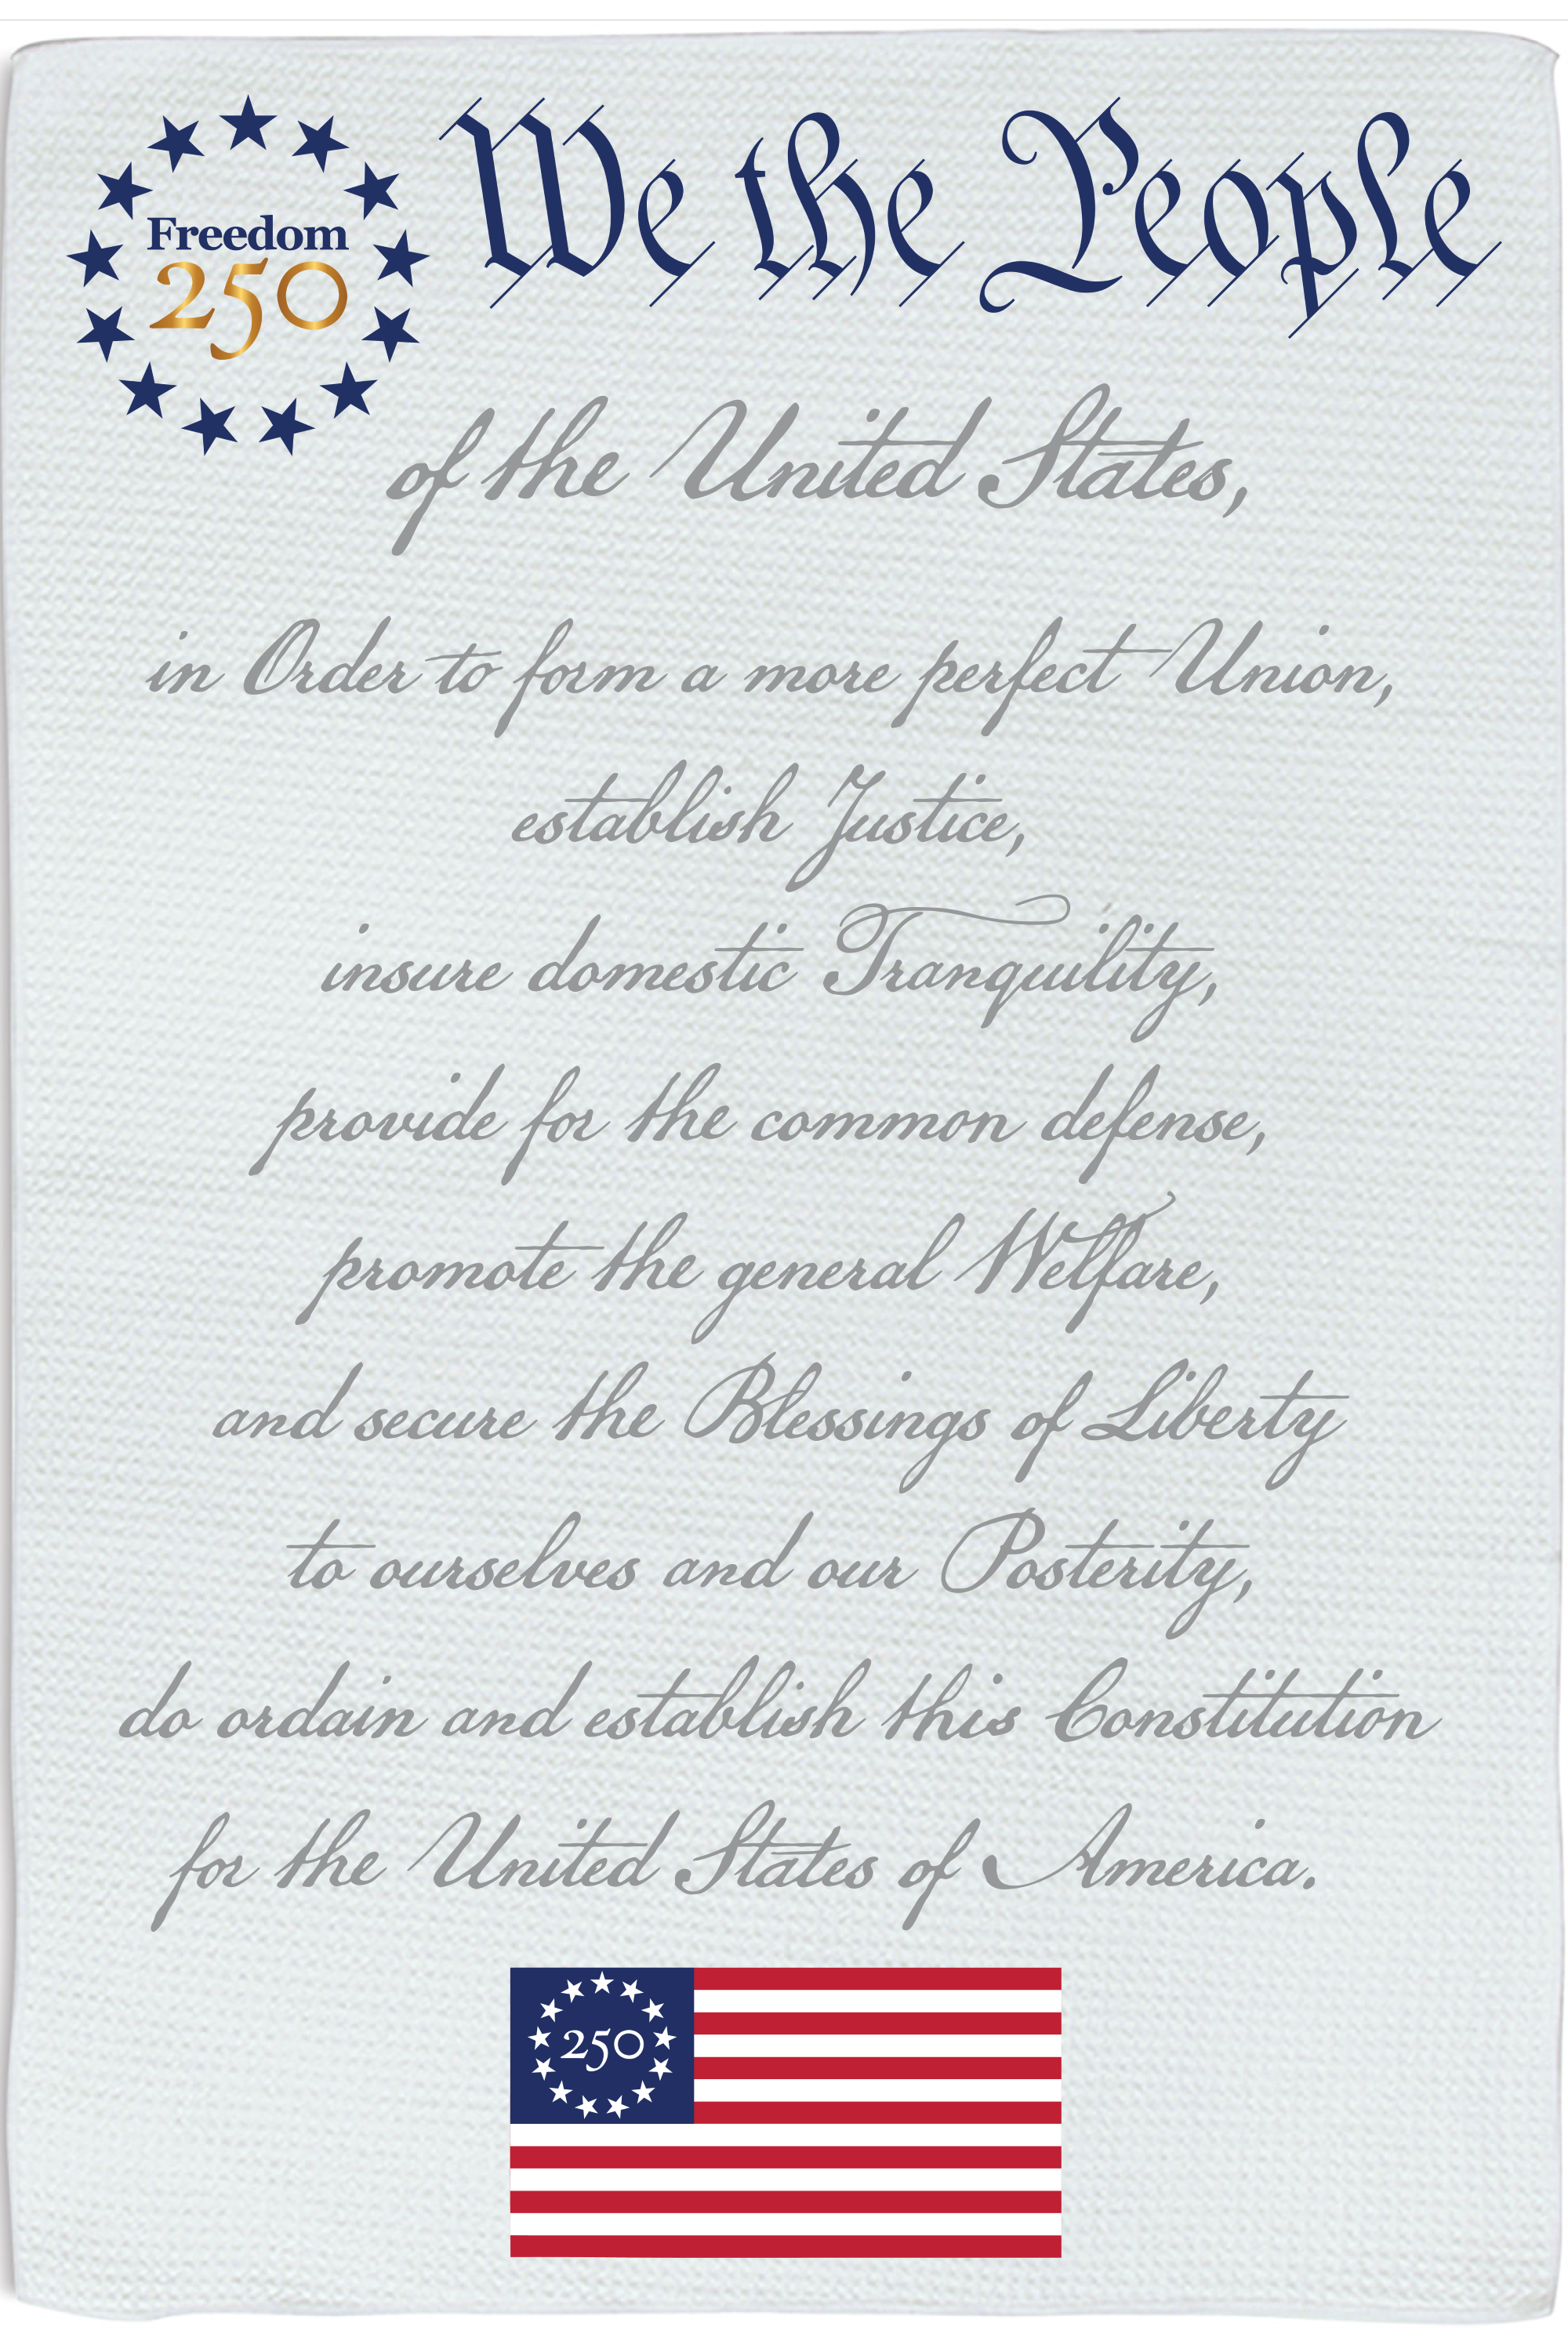 Freedom
250
We the People
of the United States,
in Order to form a more perfect Union,
establish Justice,
insure domestic Tranquility,
provide for the common defense,
promote the general Welfare,
and secure the Blessings of Liberty
to ourselves and our Posterity,
do ordain and establish this Constitution
for the United States of America.
250